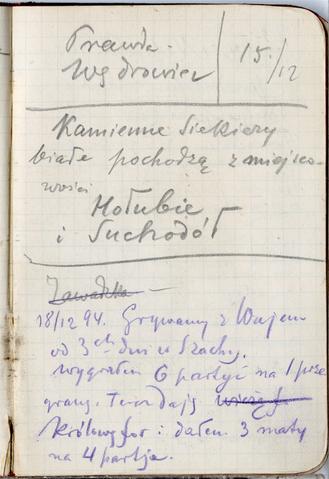 Prawda.
Wędrowiec
15/12
Kamienne Siekiery
białe pochodzą z miejsco-
wości
Hołubie
i Suchodół
Zawadzka —
18/12 94. Grywamy z Wujem
od 3ch dni w Szachy.
wygrałem 6 partyi na 1 prze
graną. Twardają
Królowę for i dałem 3 maty
na 4 partje.